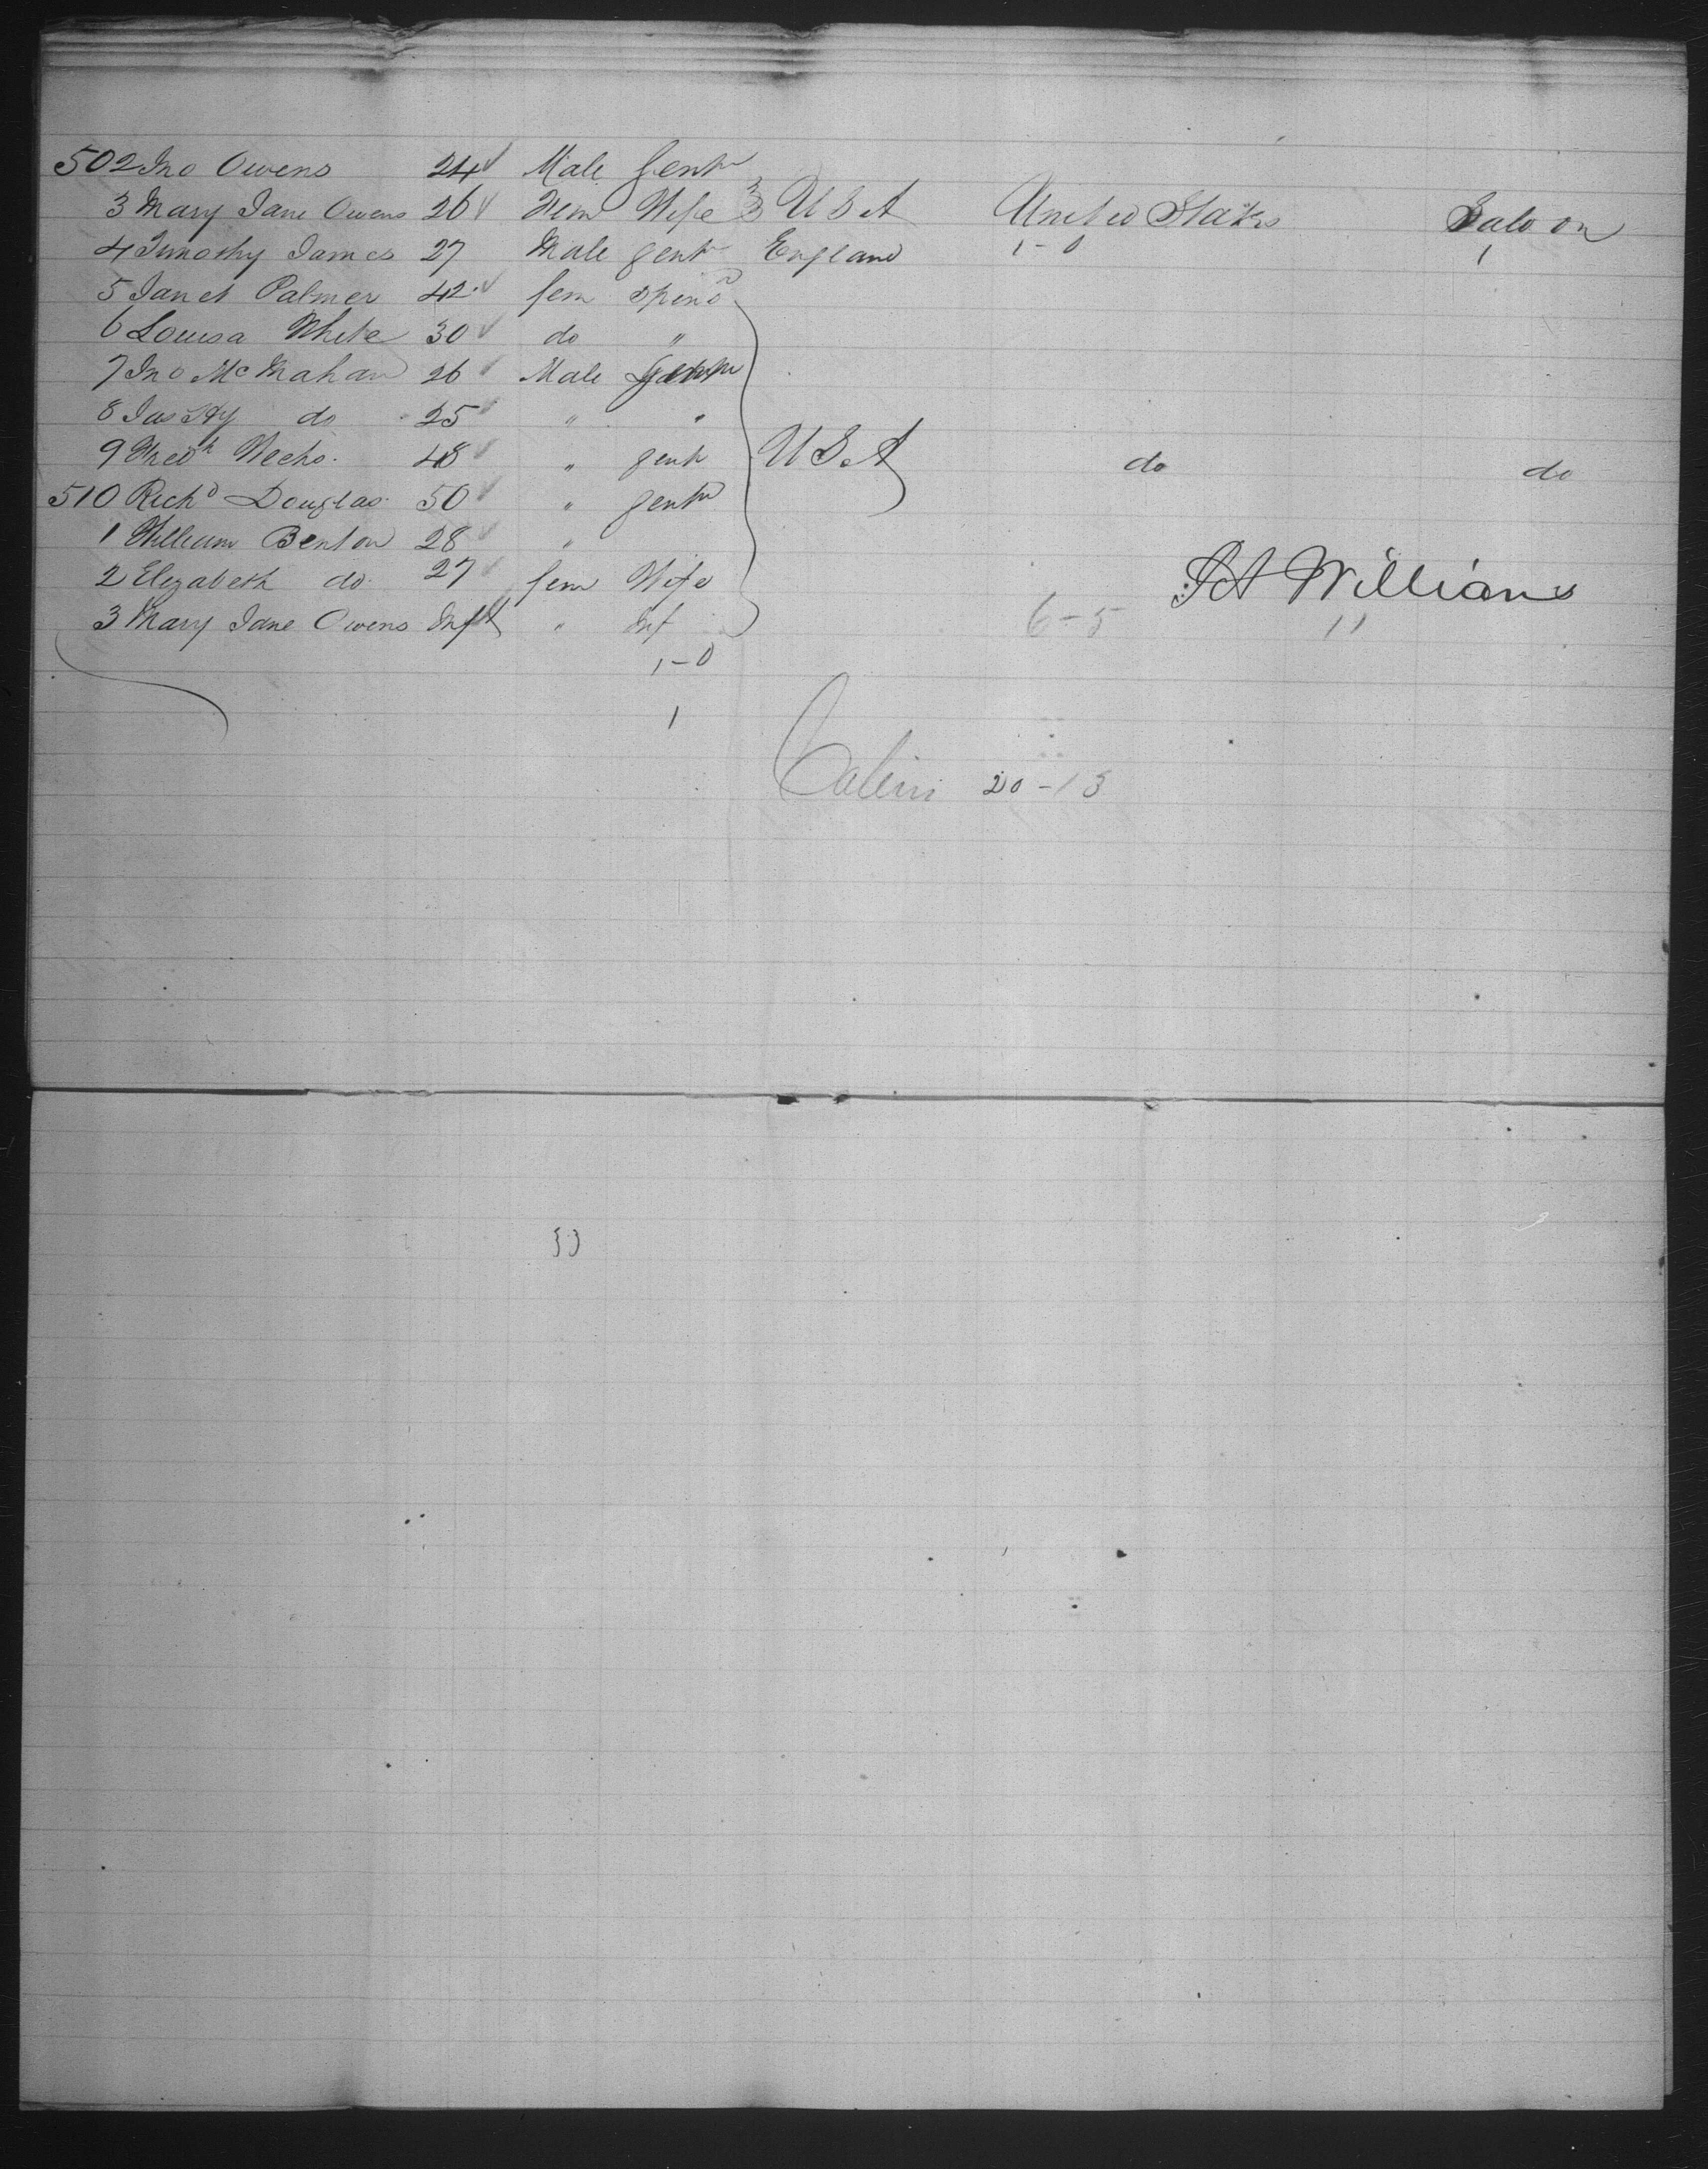 502 Jno Owens 24 Male Gent
3 Mary Jane Owens 26 Fem Wife } U S A United States Saloon
4 Timothy James 27 Male gent England 1-0 1
5 Janet Palmer 42 fem Spinr
6 Louisa White 30 do "
7 Jno McMahan 26 Male Gent
8 Jas Hy do 25 " "
9 Fredk 48 " gent U S A do do
510 Richd Douglas 50 " gent
1 William Benton 28 "
2 Elizabeth do 27 fem Wife Williams
3 Mary Jane Owens Inft " Inf 6-5 11
1-0
1
Cabin 20-13